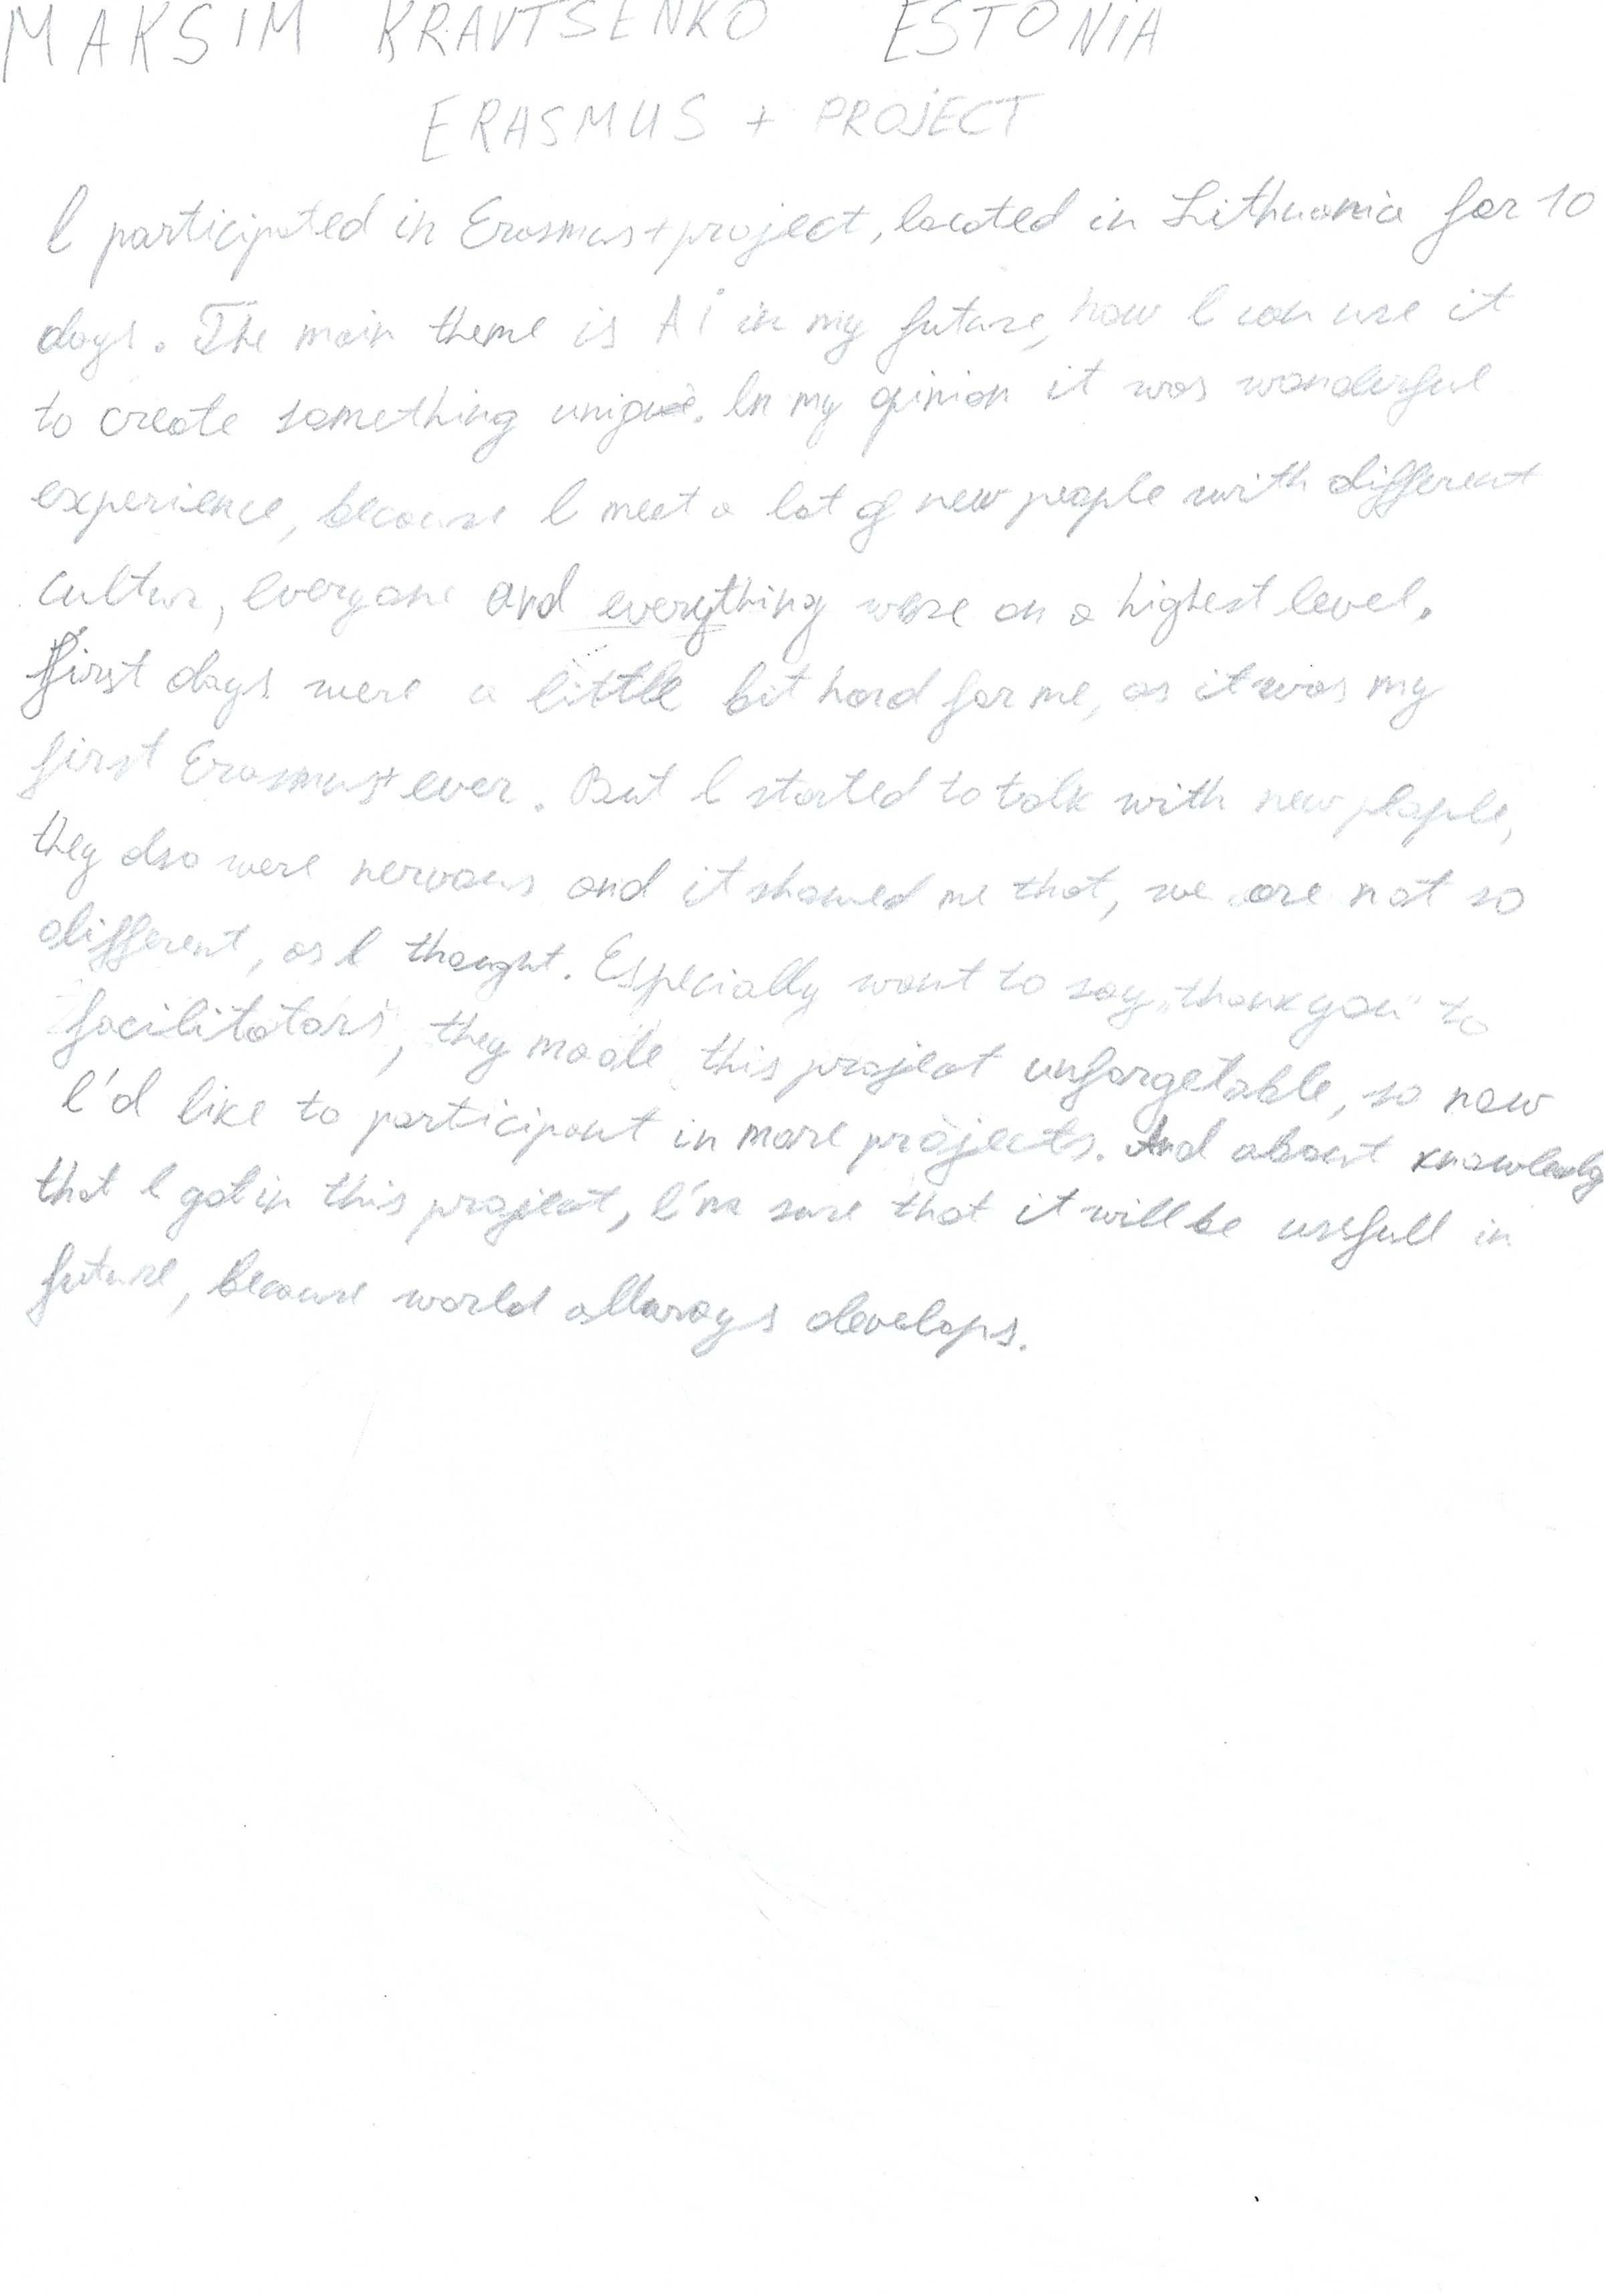 MAKSIM KRAVTSENKO ESTONIA
ERASMUS + PROJECT
I participated in Erasmus+ project, located in Lithuania for 10
days. The main theme is Ai in my future, how I can use it
to create something unique. In my opinion it was wonderful
experience, because I meet a lot of new people with different
cultur, everyone and everything were on a highest level.
First days were a little bit hard for me, as it was my
first Erasmus+ ever. But I started to talk with new people,
they also were nervous and it showed me that, we are not so
different, as I thought. Especially want to say „thank you" to
facilitators, they made this project unforgetable, so now
I'd like to participant in more projects. And about knowledg
that I got in this project, I'm sure that it will be usefull in
future, because world allways develops.